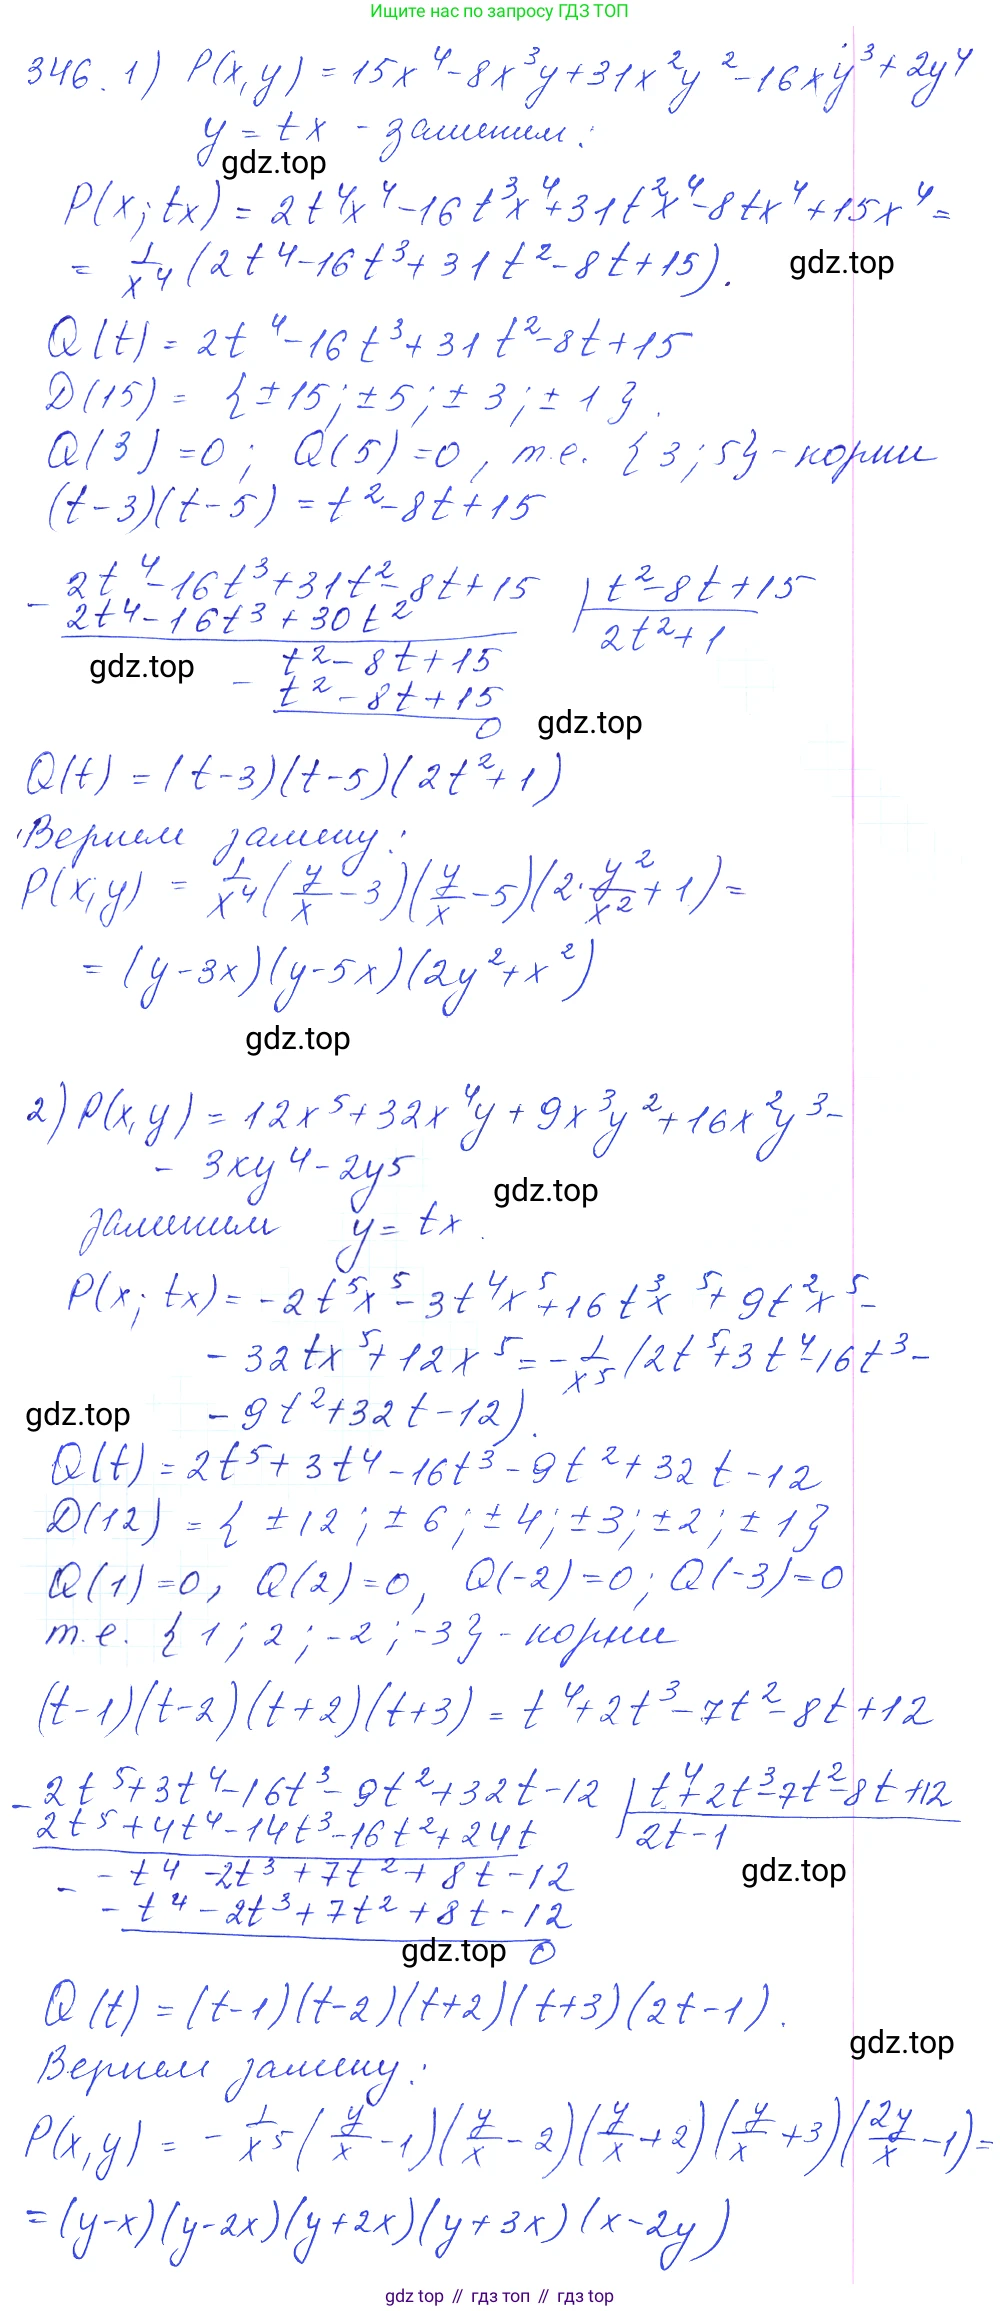 Ищите нас по запросу ГДЗ ТОП
346. 1) P(x,y) = 15x⁴-8x³y+31x²y²-16xy³+2y⁴
y = tx - заменим:
gdz.top
P(x; tx) = 2t⁴x⁴-16t³x⁴+31t²x⁴-8tx⁴+15x⁴=
= 1/x⁴ (2t⁴-16t³+31t²-8t+15).
gdz.top
Q(t) = 2t⁴-16t³+31t²-8t+15
D(15) = {±15; ±5; ±3; ±1}.
Q(3)=0; Q(5)=0, т.е. {3; 5}-корни
(t-3)(t-5) = t²-8t+15
- 2t⁴-16t³+31t²-8t+15 | t²-8t+15
2t⁴-16t³+30t² 2t²+1
gdz.top t²-8t+15
- t²-8t+15
0 gdz.top
Q(t) = (t-3)(t-5)(2t²+1)
Вернем замену:
P(x;y) = 1/x⁴ (y/x -3)(y/x -5)(2·y²/x² +1)=
= (y-3x)(y-5x)(2y²+x²)
gdz.top
2) P(x,y) = 12x⁵+32x⁴y+9x³y²+16x²y³-
- 3xy⁴-2y⁵
gdz.top
заменим y = tx.
P(x; tx) = -2t⁵x⁵-3t⁴x⁵+16t³x⁵+9t²x⁵-
- 32tx⁵+12x⁵ = -1/x⁵ (2t⁵+3t⁴-16t³-
gdz.top - 9t²+32t-12).
Q(t) = 2t⁵+3t⁴-16t³-9t²+32t-12
D(12) = {±12; ±6; ±4; ±3; ±2; ±1}
Q(1)=0, Q(2)=0, Q(-2)=0; Q(-3)=0
т.е. {1; 2; -2; -3}-корни
(t-1)(t-2)(t+2)(t+3) = t⁴+2t³-7t²-8t+12
- 2t⁵+3t⁴-16t³-9t²+32t-12 | t⁴+2t³-7t²-8t+12
2t⁵+4t⁴-14t³-16t²+24t 2t-1
- -t⁴-2t³+7t²+8t-12 gdz.top
-t⁴-2t³+7t²+8t-12
gdz.top 0
Q(t) = (t-1)(t-2)(t+2)(t+3)(2t-1).
gdz.top
Вернем замену:
P(x,y) = -1/x⁵ (y/x -1)(y/x -2)(y/x +2)(y/x +3)(2y/x -1)=
= (y-x)(y-2x)(y+2x)(y+3x)(x-2y)
gdz top // гдз топ // gdz top